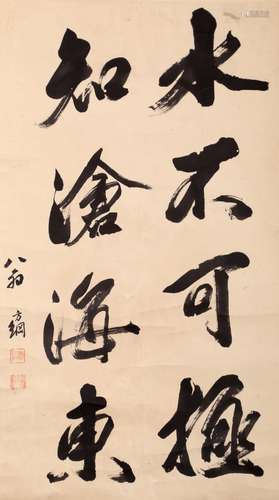 水不可極
知滄海東
八翁方綱